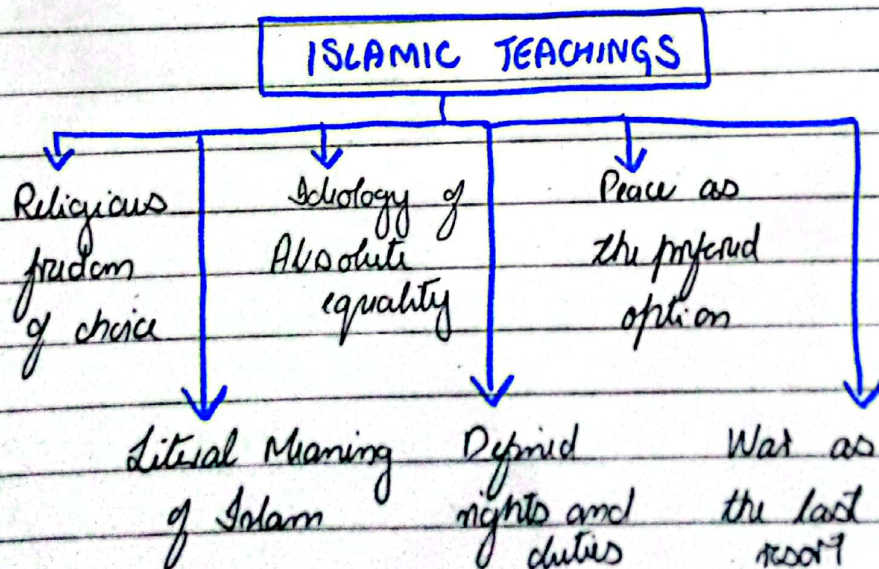 ISLAMIC TEACHINGS
Religious
freedom
of choice
Ideology of
Absolute
equality
Peace as
the prefered
option
Literal Meaning
of Islam
Defined
rights and
duties
War as
the last
resort